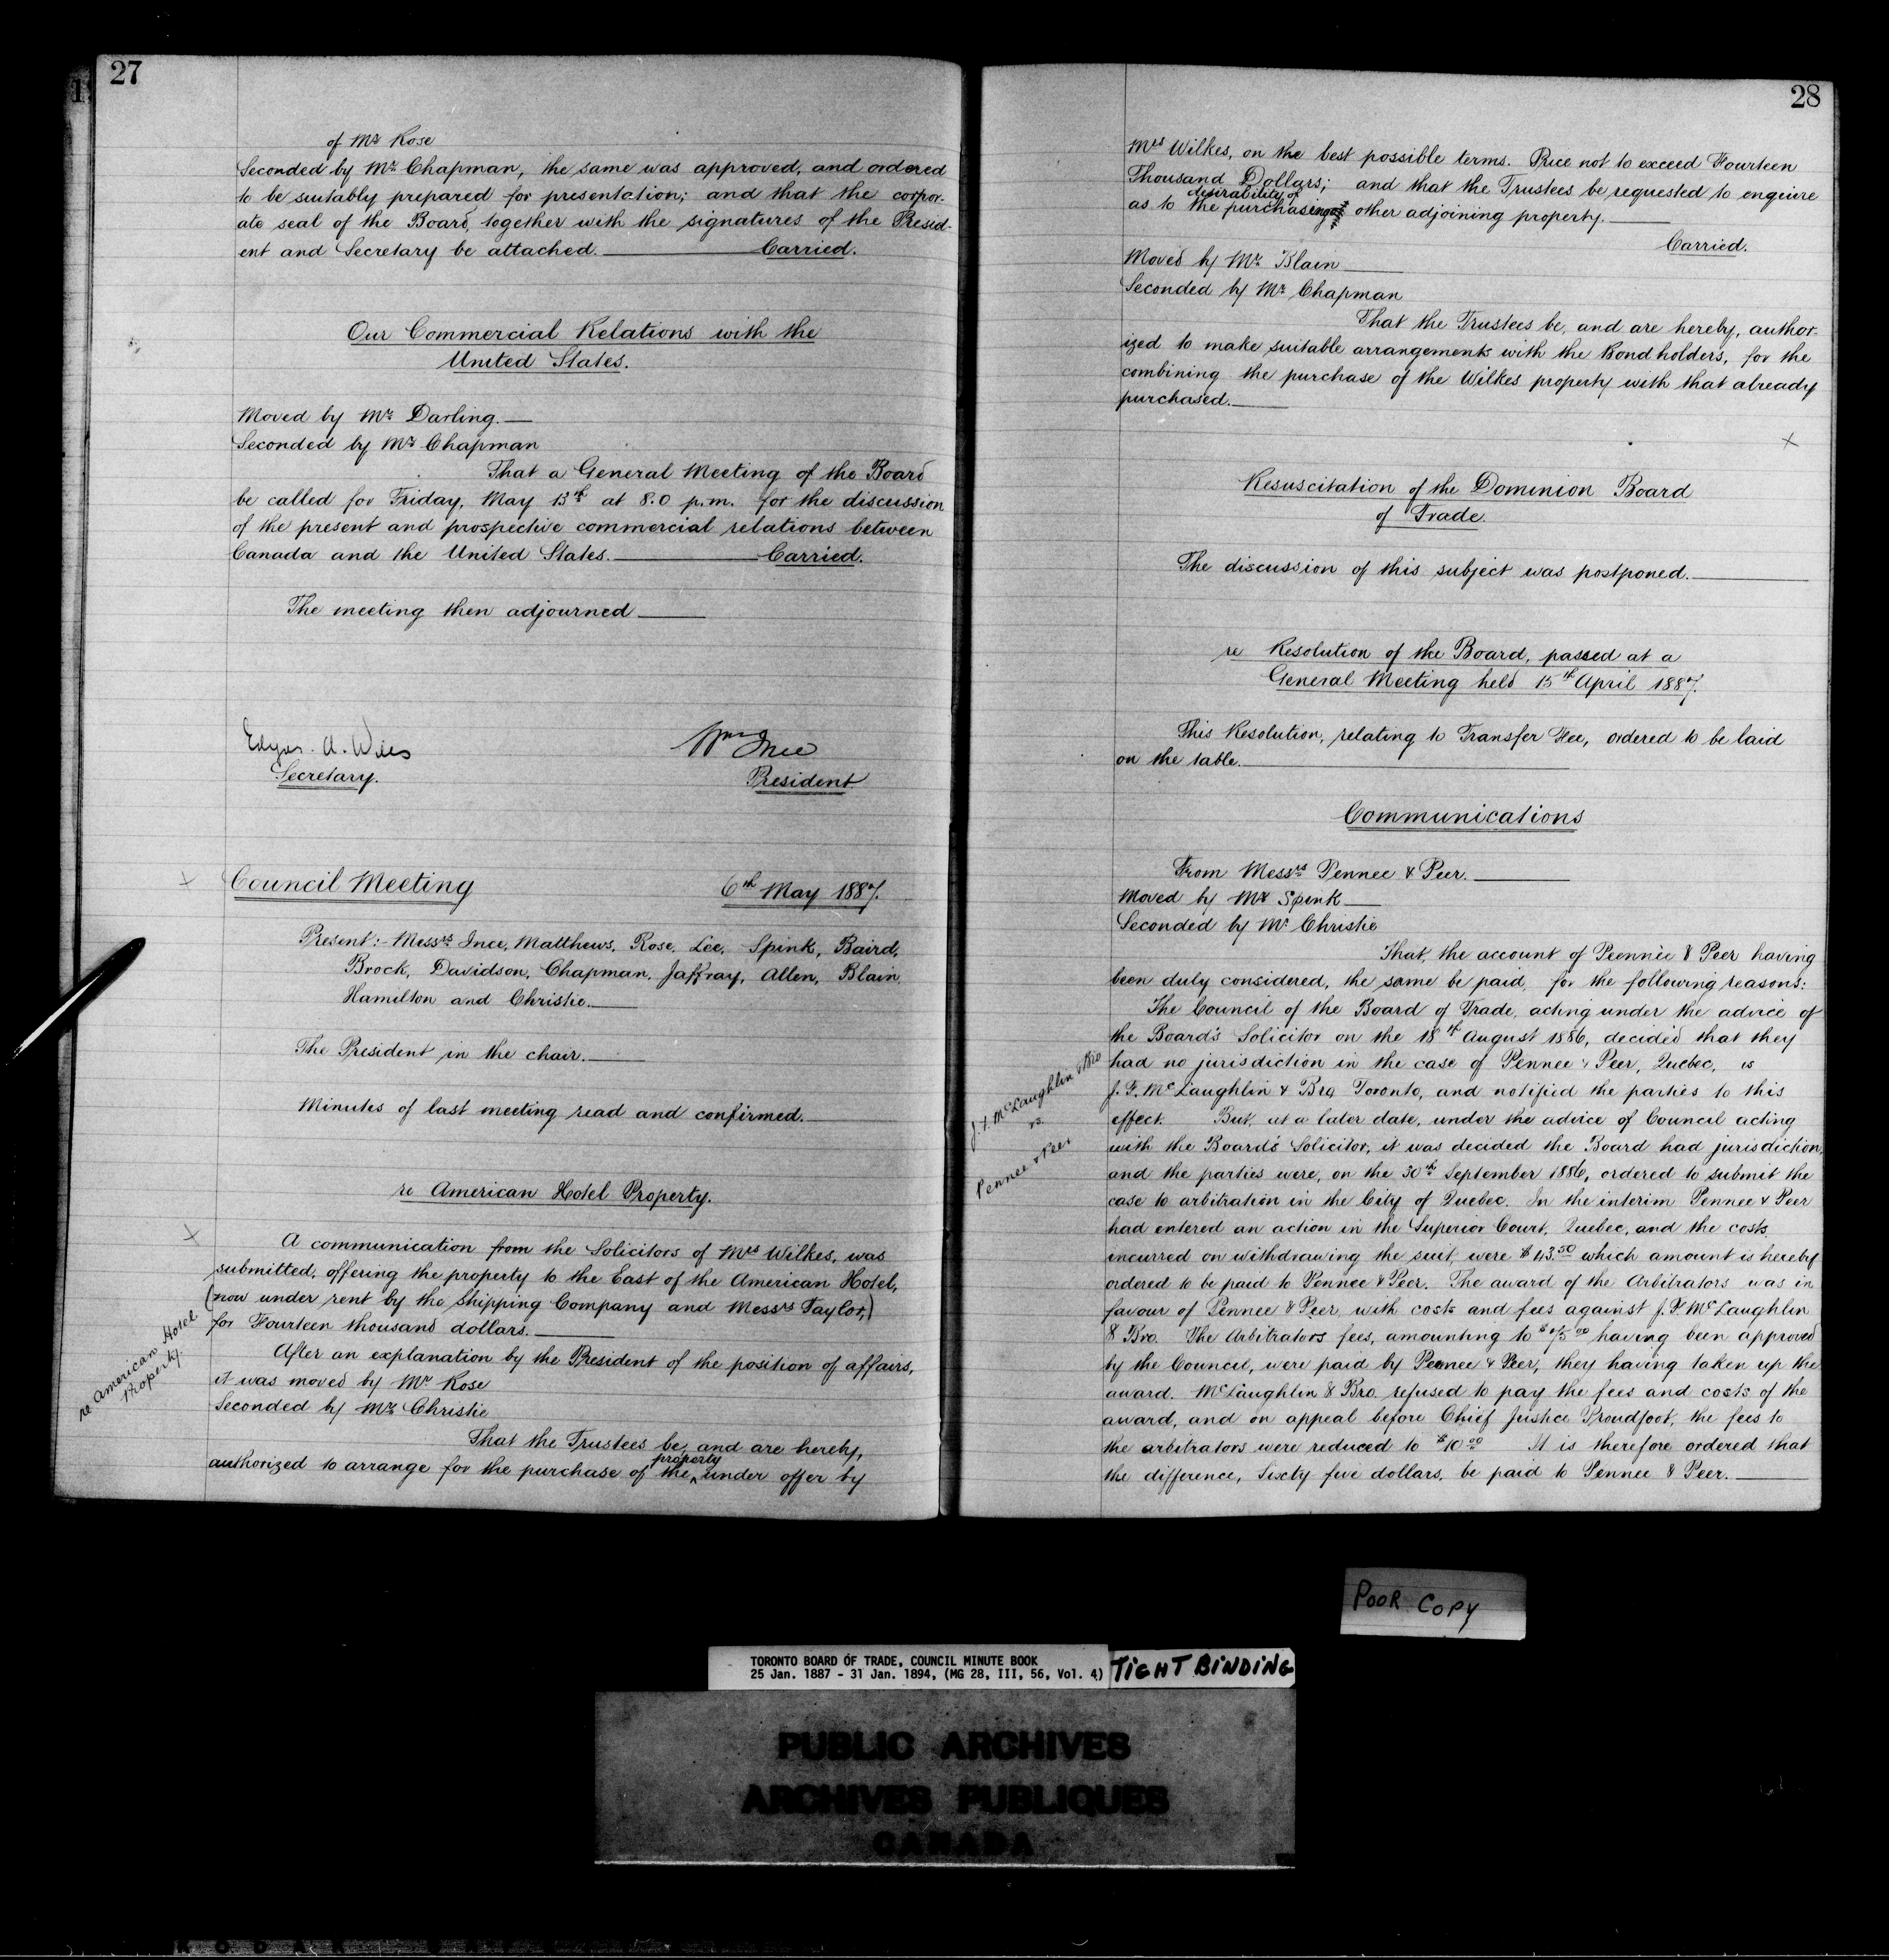 27
of Mr Rose
Seconded by Mr Chapman, the same was approved, and ordered
to be suitably prepared for presentation; and that the corpor-
ate seal of the Board, together with the signatures of the Presid-
ent and Secretary be attached. Carried.
Our Commercial Relations with the
United States.
Moved by Mr Darling.
Seconded by Mr Chapman
That a General Meeting of the Board
be called for Friday, May 13th at 8.0 p.m. for the discussion
of the present and prospective commercial relations between
Canada and the United States. Carried.
The meeting then adjourned
Edgar. A. Wills
Secretary.
Wm Ince
President
Council Meeting 6th May 1887.
Present:- Messrs Ince, Matthews, Rose, Lee, Spink, Baird,
Brock, Davidson, Chapman, Jaffray, Allen, Blain,
Hamilton and Christie.
The President in the chair.
Minutes of last meeting read and confirmed.
re American Hotel Property.
A communication from the Solicitors of Mrs Wilkes, was
submitted, offering the property to the East of the American Hotel,
(now under rent by the Shipping Company and Messrs Taylor,)
for Fourteen thousand dollars.
re American Hotel
Property.
After an explanation by the President of the position of affairs,
it was moved by Mr Rose
Seconded by Mr Christie
That the Trustees be, and are hereby,
authorized to arrange for the purchase of the property under offer by
28
Mrs Wilkes, on the best possible terms. Price not to exceed Fourteen
Thousand Dollars; and that the Trustees be requested to enquire
as to the desirability of purchasing other adjoining property.
Carried.
Moved by Mr Blain
Seconded by Mr Chapman
That the Trustees be, and are hereby, author-
ized to make suitable arrangements with the Bondholders, for the
combining the purchase of the Wilkes property with that already
purchased.
Resuscitation of the Dominion Board
of Trade.
The discussion of this subject was postponed.
re Resolution of the Board, passed at a
General Meeting held 15th April 1887.
This Resolution, relating to Transfer Fee, ordered to be laid
on the table.
Communications
From Messrs Pennee & Peer.
Moved by Mr Spink
Seconded by Mr Christie
That, the account of Pennee & Peer having
been duly considered, the same be paid, for the following reasons:
The Council of the Board of Trade, acting under the advice of
the Board's Solicitor on the 18th August 1886, decided that they
had no jurisdiction in the case of Pennee & Peer, Quebec, vs
J. F. McLaughlin & Bro Toronto, and notified the parties to this
J. F. McLaughlin & Bro
vs.
Pennee & Peer
effect. But, at a later date, under the advice of Council acting
with the Board's Solicitor, it was decided the Board had jurisdiction,
and the parties were, on the 30th September 1886, ordered to submit the
case to arbitration in the City of Quebec. In the interim Pennee & Peer
had entered an action in the Superior Court, Quebec, and the costs
incurred on withdrawing the suit, were which amount is hereby
ordered to be paid to Pennee & Peer. The award of the Arbitrators was in
favour of Pennee & Peer, with costs and fees against J. F. McLaughlin
& Bro. The Arbitrators fees, amounting to $75 00 having been approved
by the Council, were paid by Pennee & Peer, they having taken up the
award. McLaughlin & Bro. refused to pay the fees and costs of the
award, and on appeal before Chief Justice Proudfoot, the fees to
the arbitrators were reduced to $10 00 It is therefore ordered that
the difference, Sixty five dollars, be paid to Pennee & Peer.
POOR COPY
TORONTO BOARD OF TRADE, COUNCIL MINUTE BOOK
25 Jan. 1887 - 31 Jan. 1894, (MG 28, III, 56, Vol. 4)
TIGHT BINDING
PUBLIC ARCHIVES
ARCHIVES PUBLIQUES
CANADA